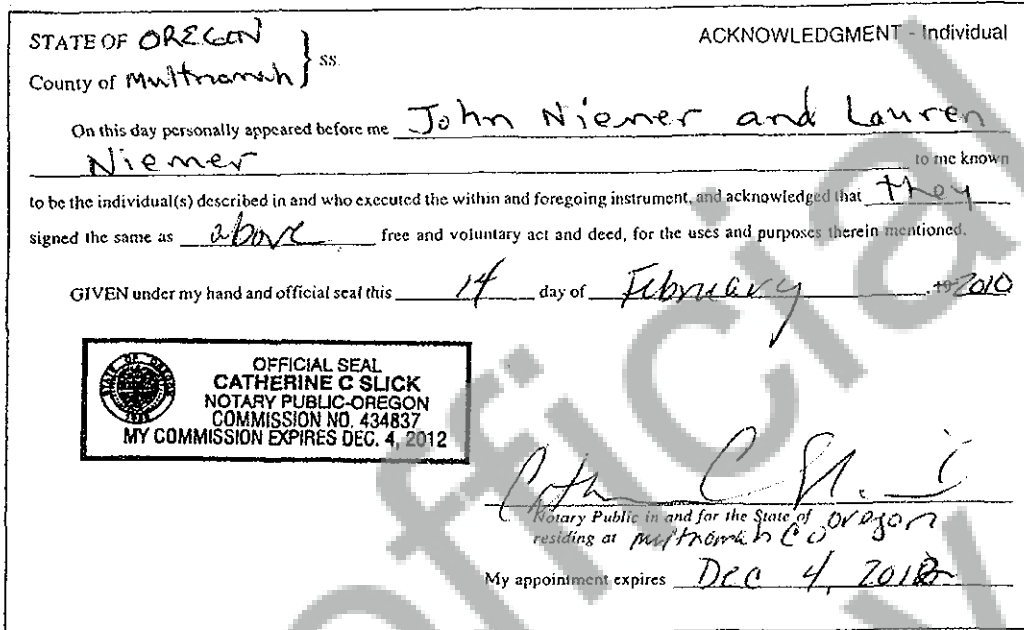 STATE OF OREGON
ACKNOWLEDGMENT - Individual
County of Multnomah
} ss.
On this day personally appeared before me John Niemer and Lauren
Niemer to me known
to be the individual(s) described in and who executed the within and foregoing instrument, and acknowledged that they
signed the same as above free and voluntary act and deed, for the uses and purposes therein mentioned.
GIVEN under my hand and official seal this 14 day of February, 19 2010
STATE OF OREGON
OFFICIAL SEAL
CATHERINE C SLICK
NOTARY PUBLIC-OREGON
COMMISSION NO. 434837
MY COMMISSION EXPIRES DEC. 4, 2012
Notary Public in and for the State of Oregon
residing at Multnomah Co
My appointment expires Dec 4, 2012